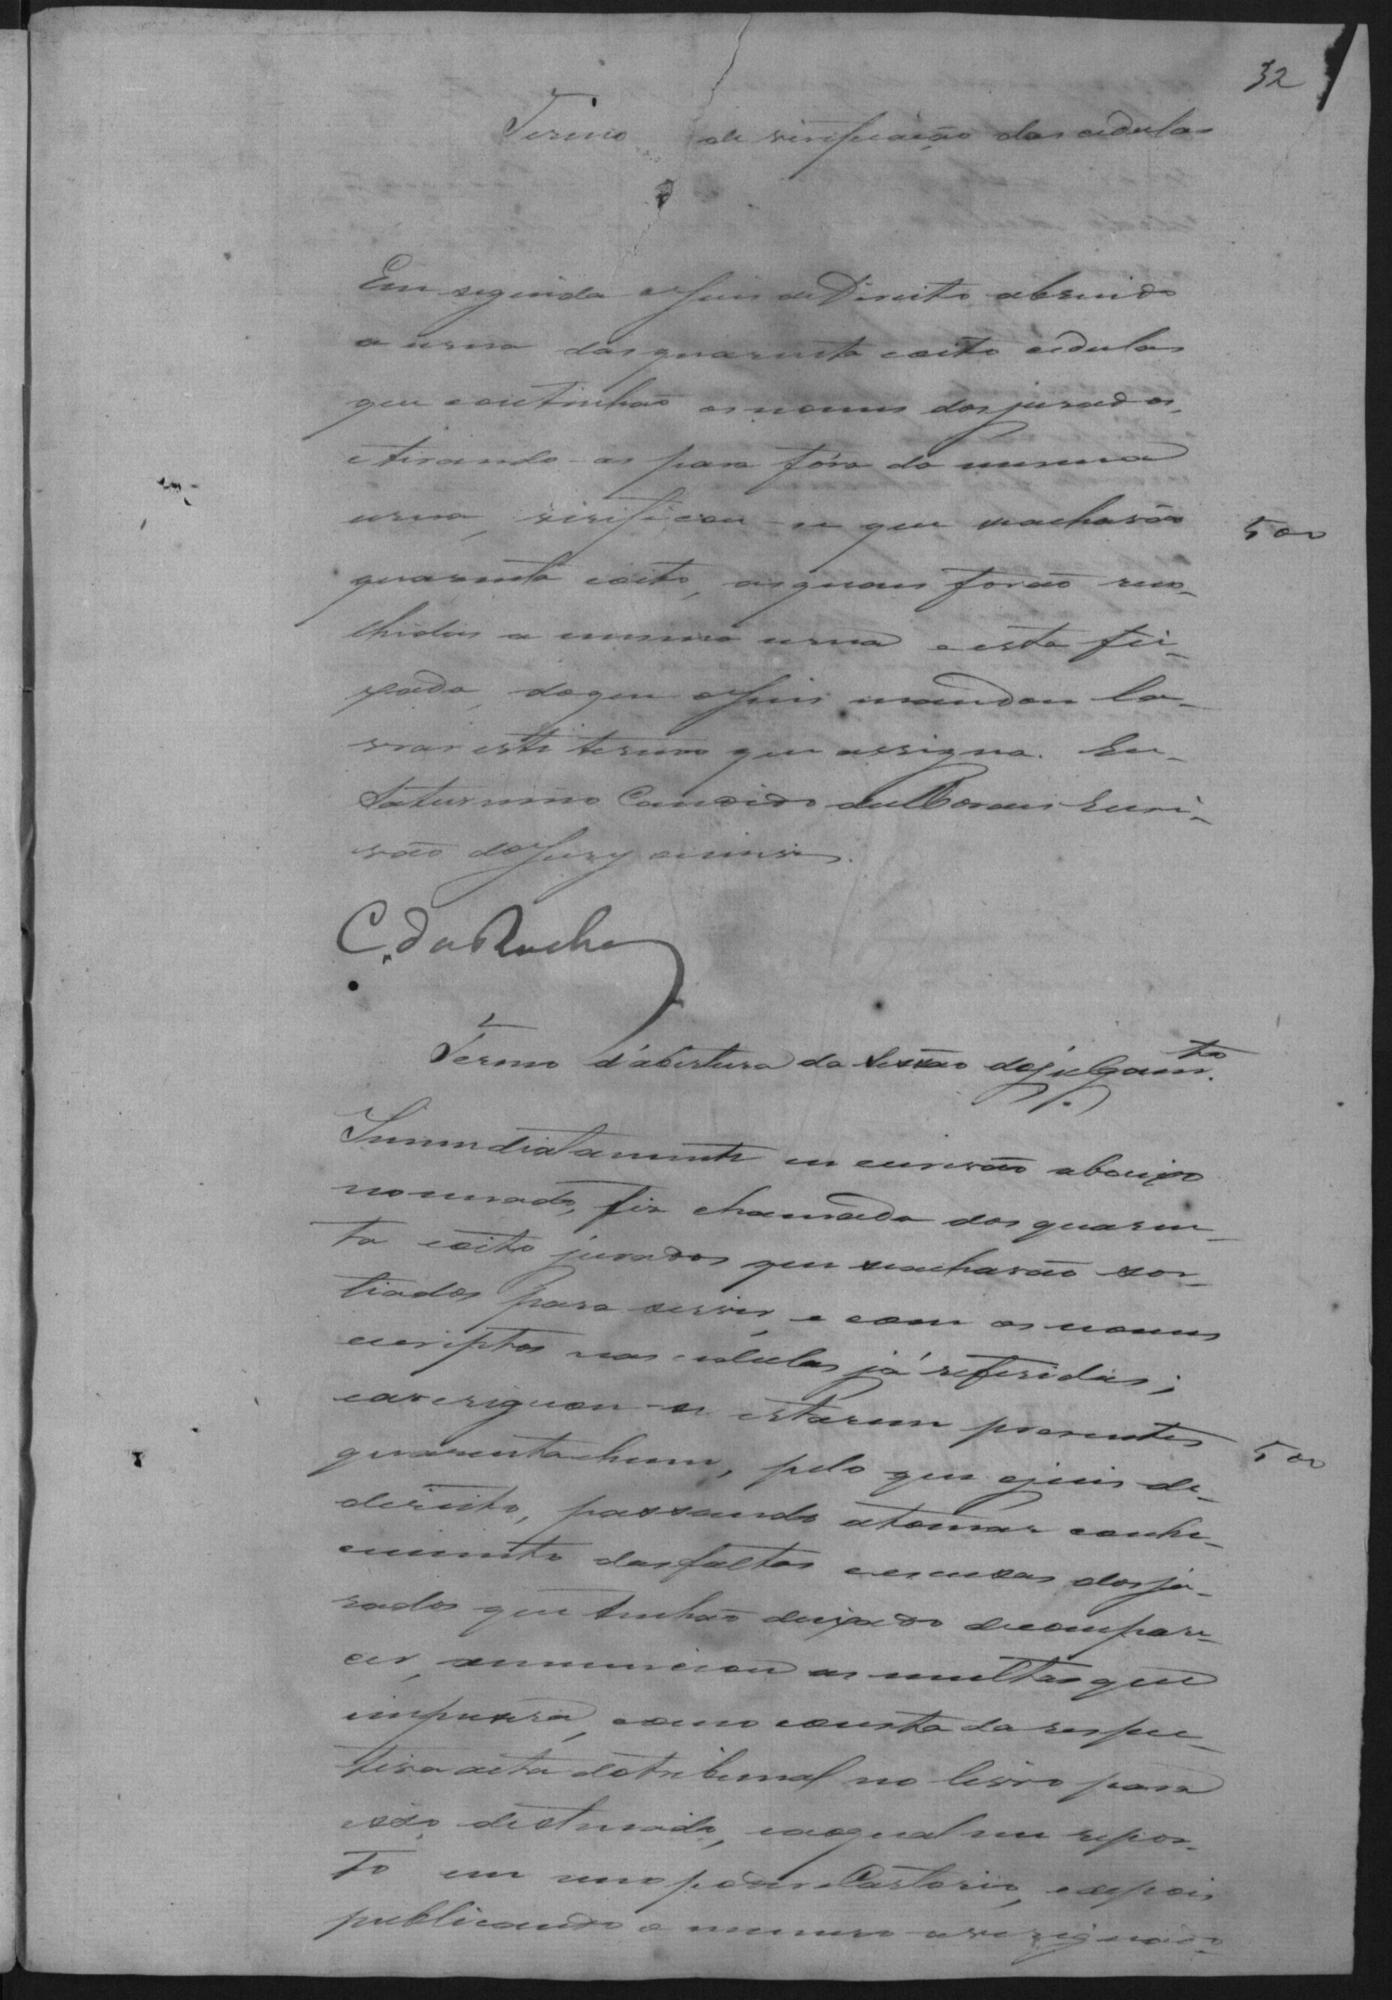 32
Termo de verificação das cedulas
Em seguida o Juis de Direito abrindo
a urna das quarenta e oito cedulas
que continhão os nomes dos jurados,
e tirando-as para fóra da mesma
urna, verificou-se que se achavão
500
quarenta e oito, as quais forão reco-
lhidas a mesma urna e esta fei-
xada, do que o Juis mandou la-
vrar este termo que assigna. Eu
Saturnino Candido de Moraes Escri-
vão do Jury o escrevi.
C. da Rocha
Termo d'abertura da sessão do julgamto.
Immediatamente eu escrivão abaixo
nomeado, fiz chamada dos quaren-
ta e oito jurados que se achavão sor-
tiados para servir, e com os nomes
escriptos nas cedulas já referidas;
e averiguou-se estarem presentes
quarenta e hum, pelo que o juis de
500
direito, passando a tomar conhe-
cimento das faltas e escusas dos ju-
rados que tinhão deixado de compare-
cer, annunciou as multas que
impusera, como consta da respec-
tiva acta do tribunal no livro para
isso destinado, ao qual me repor-
to em meo poder e Cartorio, e depois
publicando o numero averiguado